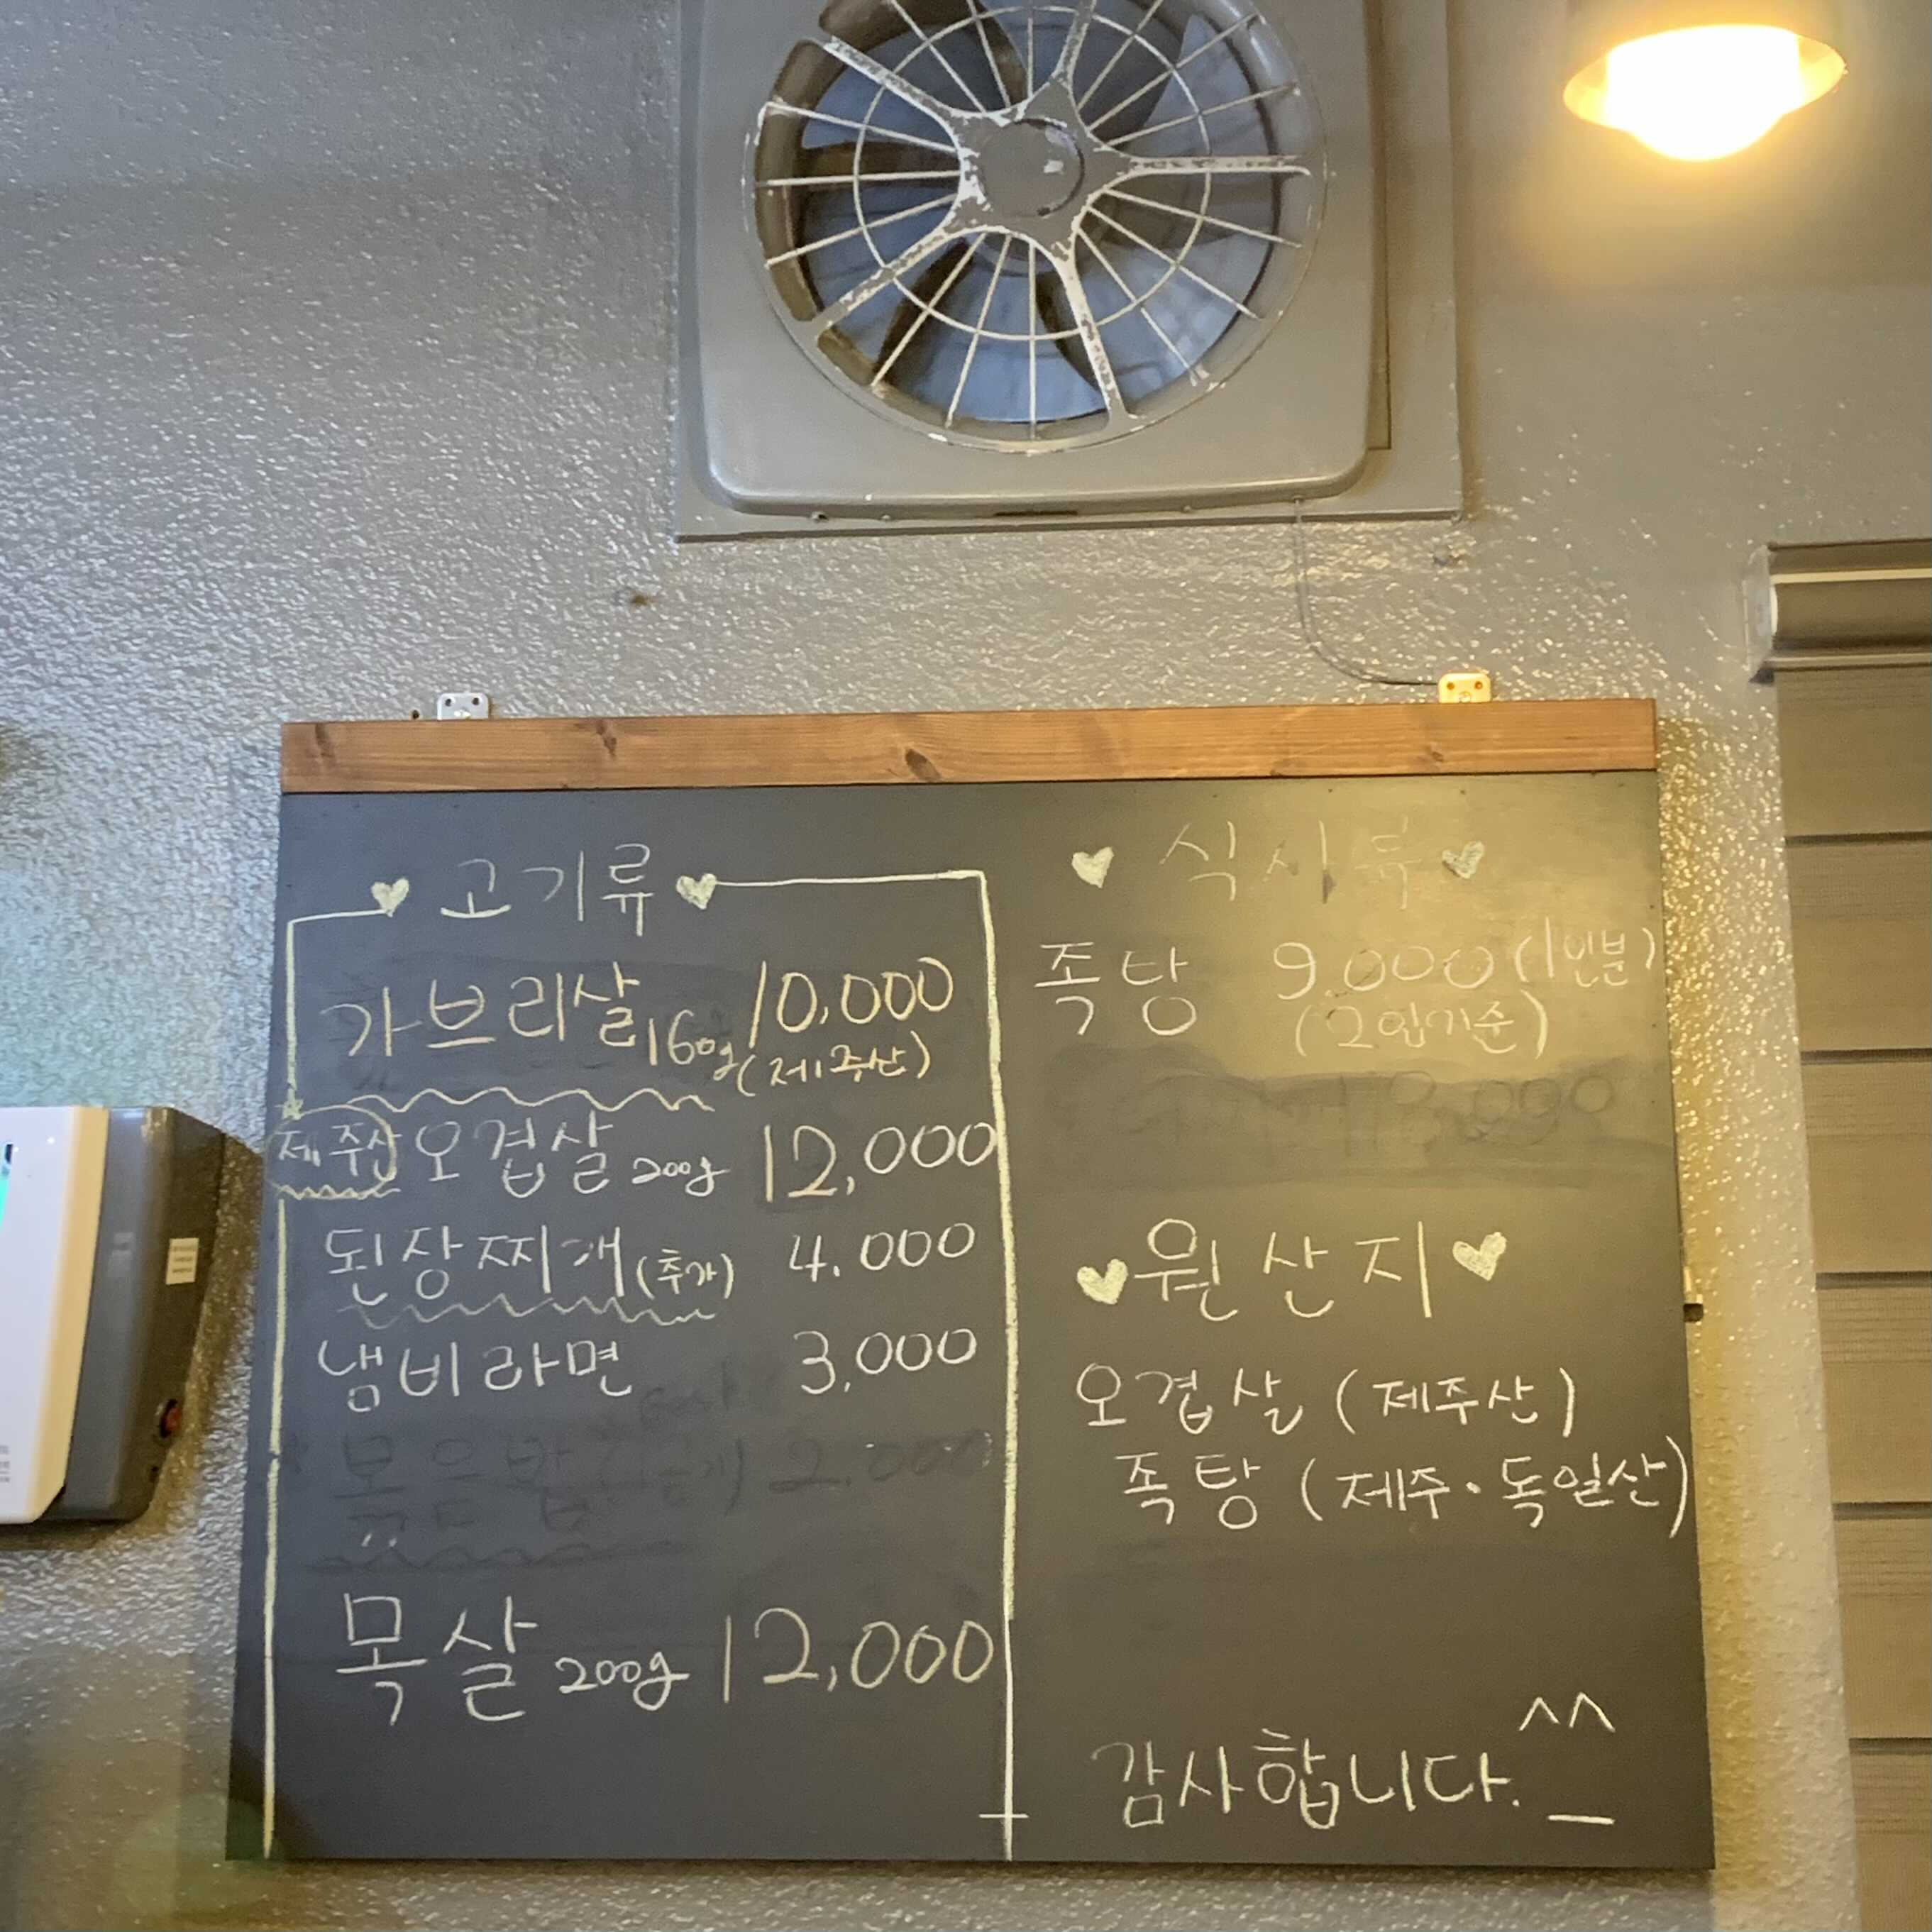 고기류
가브리살 160g 10,000
(제주산)
제주산 오겹살 200g 12,000
된장찌개 (추가) 4.000
냄비라면 3,000
볶음밥 2.000
목살 200g 12,000
식사류
족탕 9.000 (1인분)
(2인기준)
원산지
오겹살 (제주산)
족탕 (제주·독일산)
감사합니다. ^^